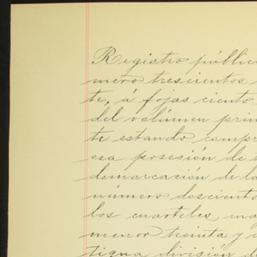 Registro públic
mero trescientos
te, á fojas ciento
del volúmen prim
te estando compr
esa posesión de
demarcación de la
número doscient
los cuarteles, ma
menor treinta y
tigua división d